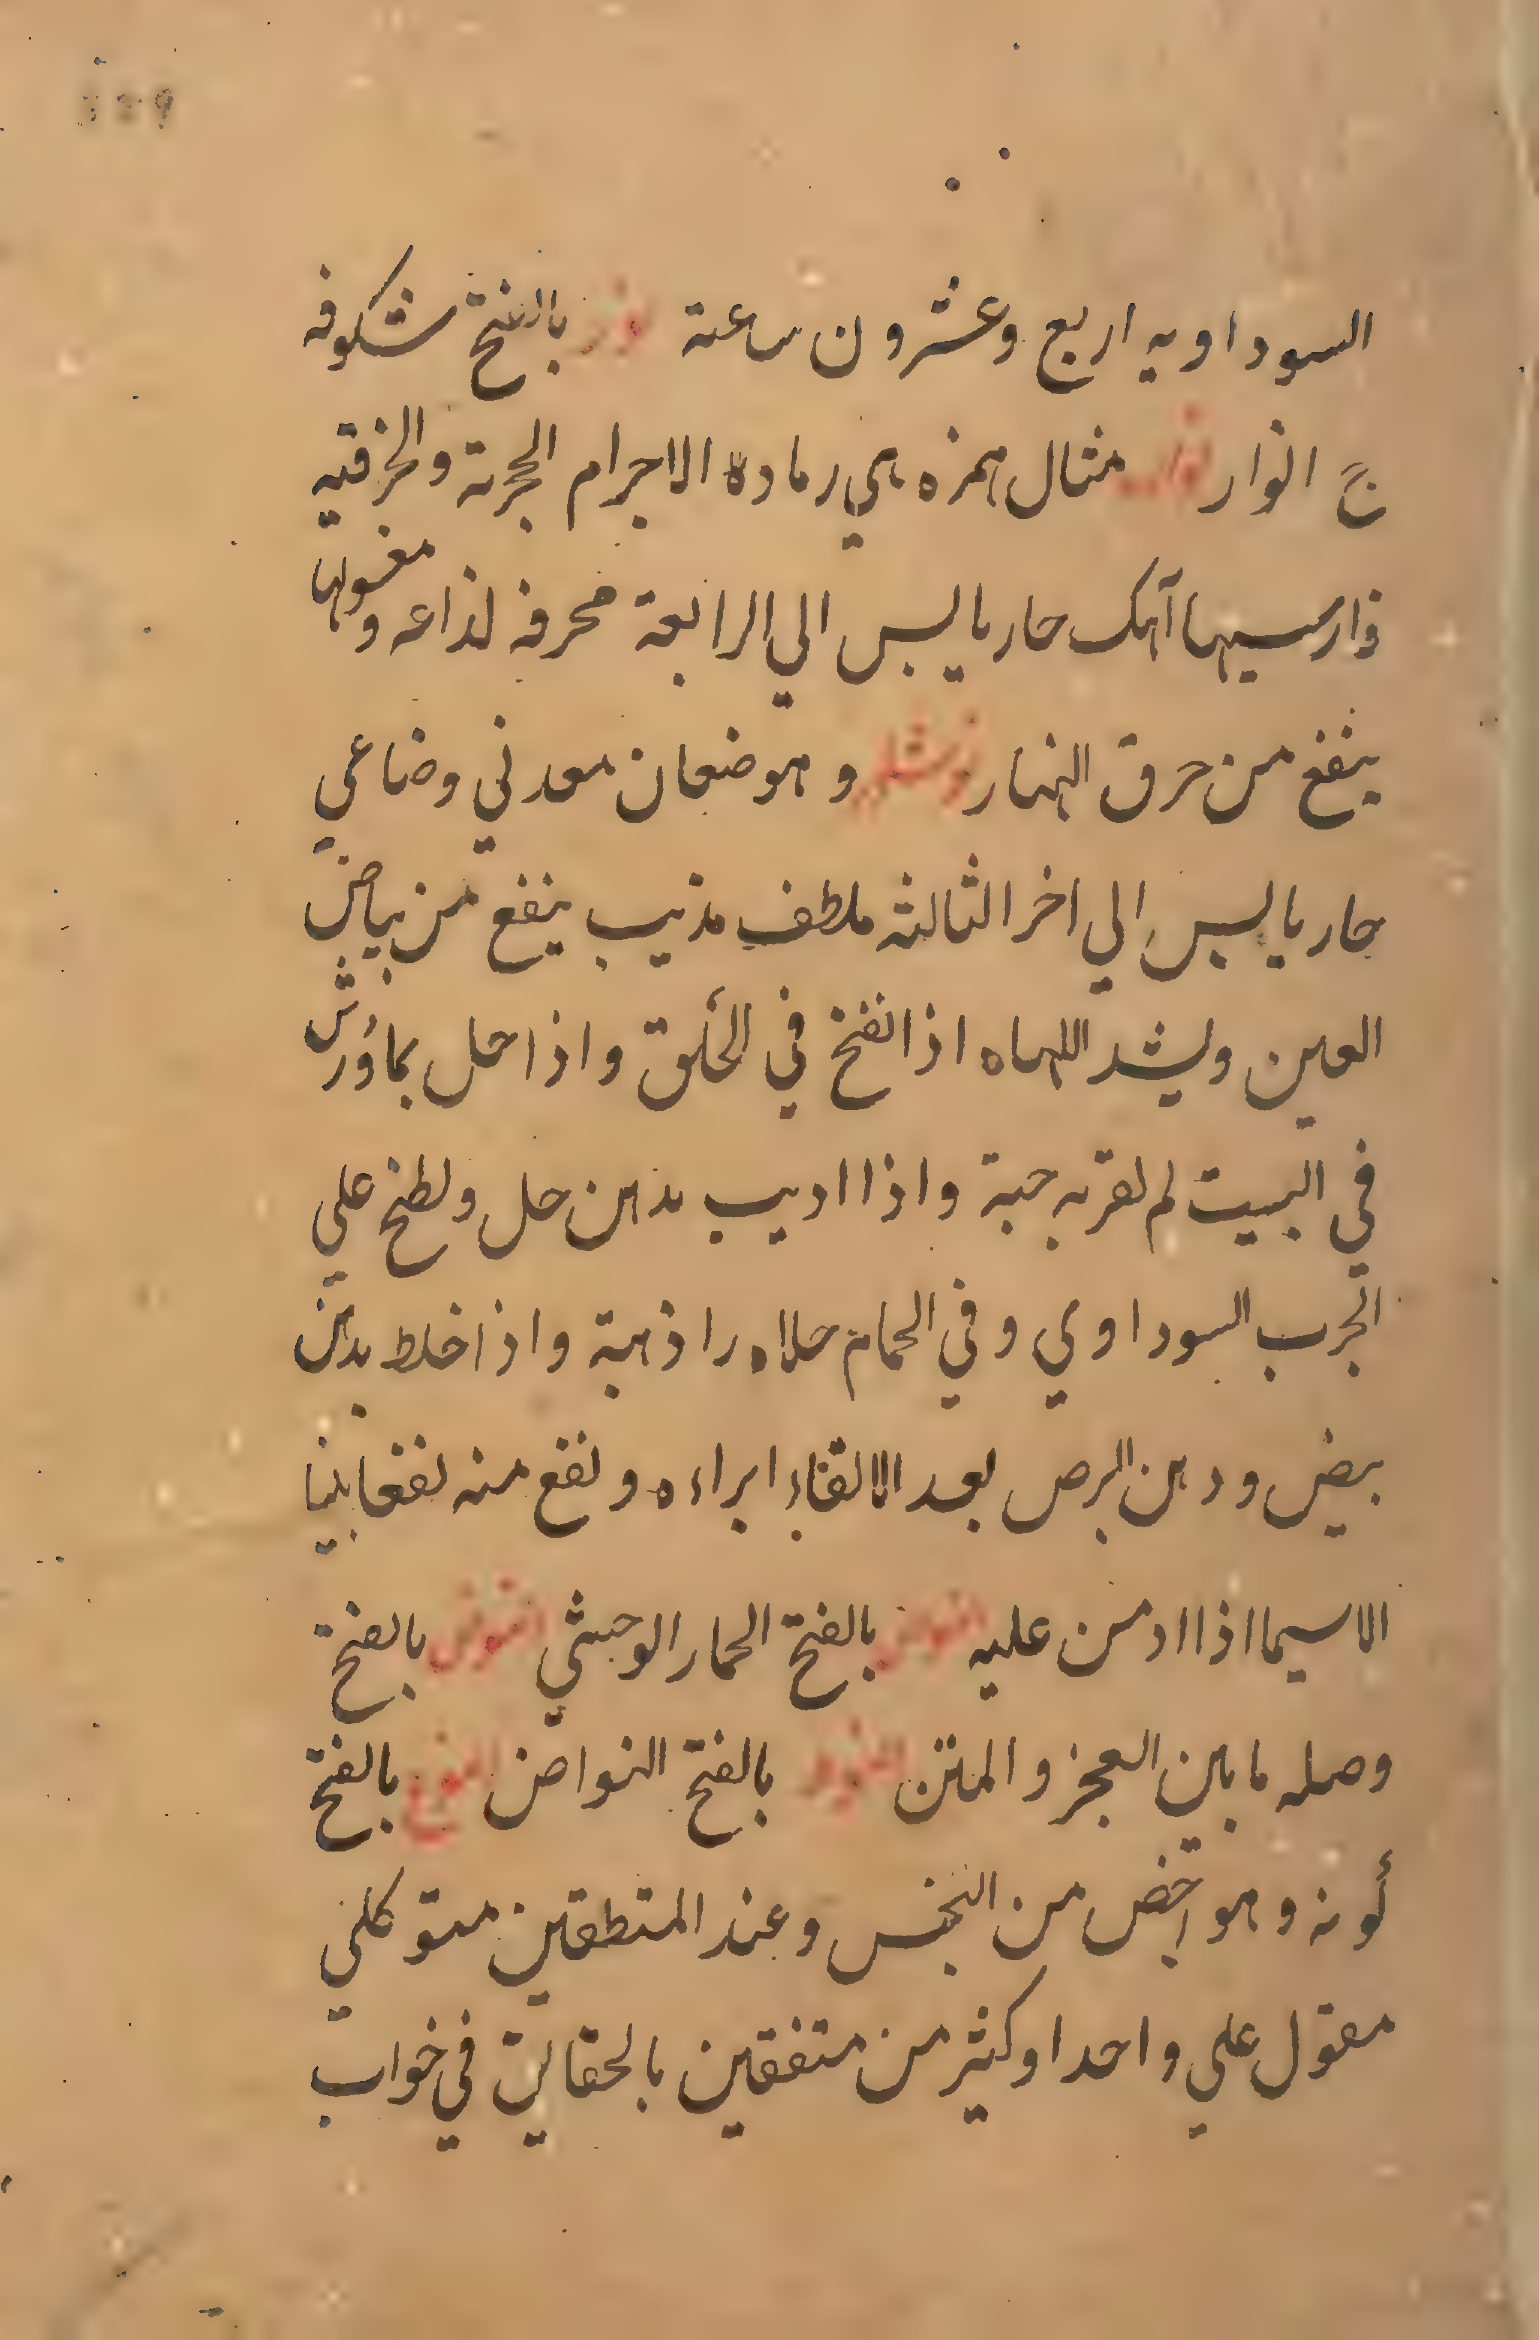 السوداويه اربع وعشرون ساعة نور بالفتح شكوفه
ج انوار نوره مثال همزه هي رماده الاجرام الحجرية والخزفيه
فارسيها آهك حار يابس الي الرابعة محرفه لذاعه و مغسولها
ينفع من حرق النار نوشادر و هو ضعان معدني وضاعي
حار يابس الي اخر الثالثه ملطف مذيب ينفع من بياض
العين ويشد اللهاه اذا نفخ في الحلق واذا حل بماء ورش
في البيت لم تقربه حية واذا اديب بدهن حل ولطخ علي
الجرب السوداوي وفي الحمام حلاه را ذهبة واذا خلط بدهن
بيض ودهن البرص بعد الالقاء ابراءه ونفع منه نفعا بينا
الاسيما اذا ادمن عليه النوص بالفتح الحمار الوحشي النوض بالفتح
وصله مابين العجز والمتن النود بالفتح النواص النوع بالفتح
گونه وهو اخص من الجنس وعند المنطقين متو كلي
مقول علي واحد او كثير من متفقين بالحقايق في خواب